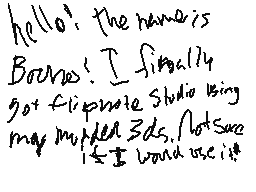 hello! the name is
Boches! I finally
got flipnote studio using
my modded 3ds. Not sure
if I would use it!